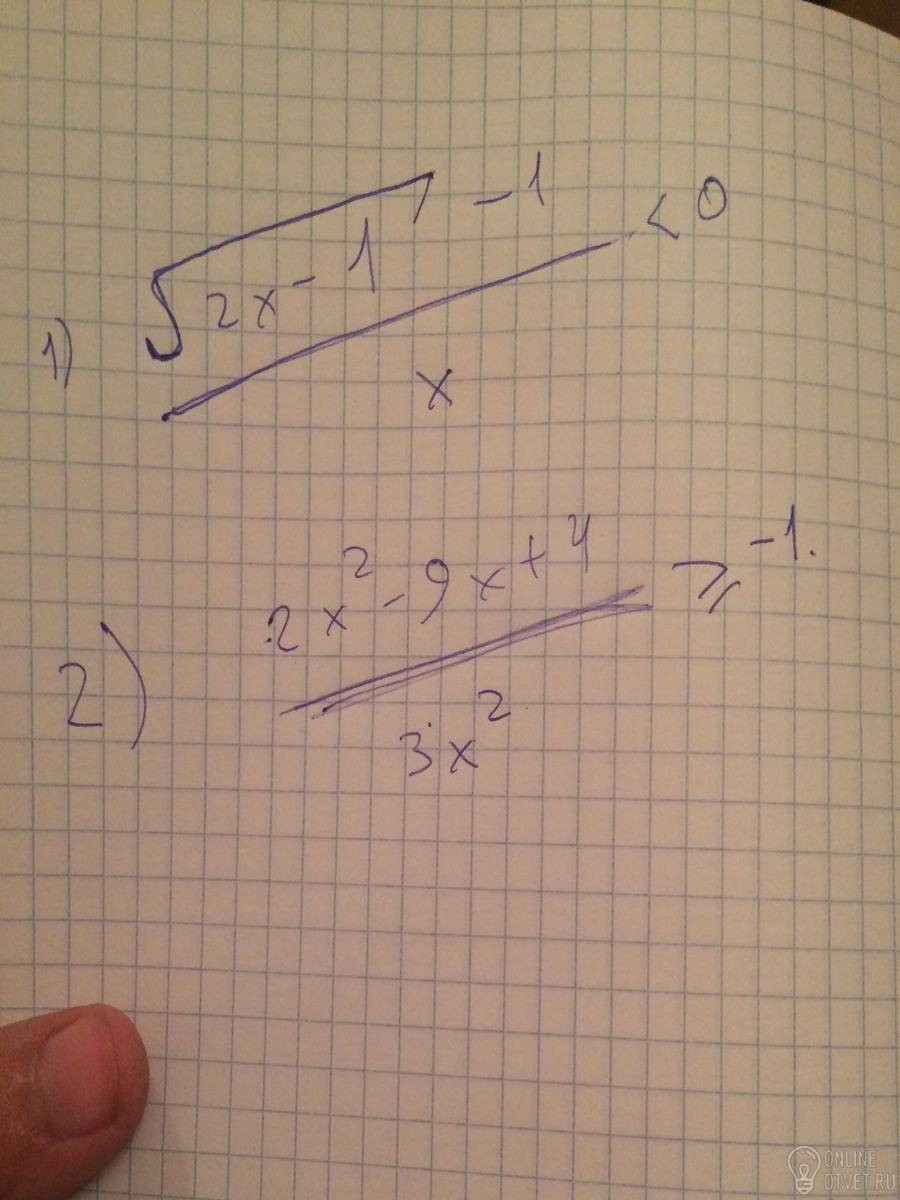 1) √(2x-1) - 1 / x < 0
2) 2x² - 9x + 4 / 3x² ⩾ -1.
ONLINE
OTVET.RU